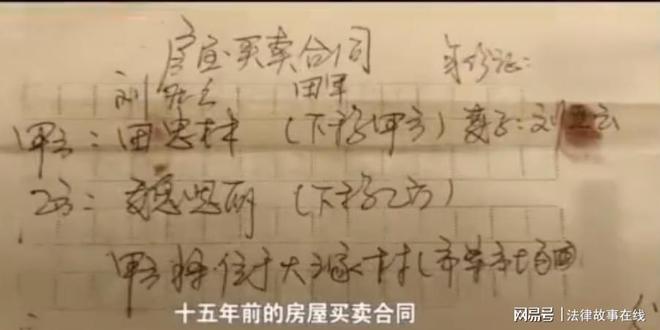 房屋买卖合同 身份证:
刘 田军
甲方:田忠林(下称甲方)妻子:刘云
乙方:魏思丽(下称乙方)
甲方将位于大家村(市菜市场西
十五年前的房屋买卖合同
网易号 | 法律故事在线